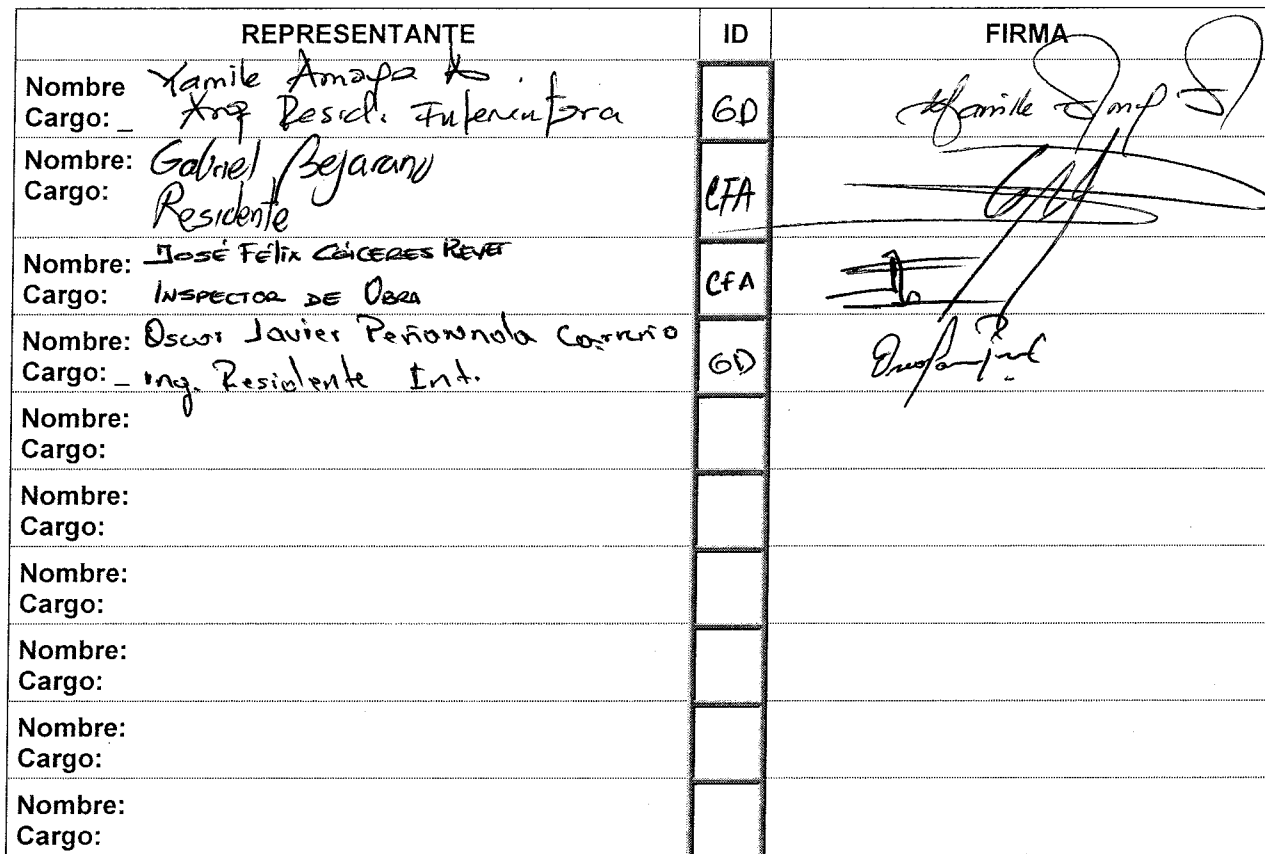 REPRESENTANTE ID FIRMA
Nombre Yamile Amaya A.
Cargo: Arq Resid. Interventora GD
Nombre: Gabriel Bejarano
Cargo: Residente CFA
Nombre: José Félix Cáiceres
Cargo: INSPECTOR DE OBRA CFA
Nombre: Oscar Javier Carreño
Cargo: Ing. Residente Int. GD
Nombre:
Cargo:
Nombre:
Cargo:
Nombre:
Cargo:
Nombre:
Cargo:
Nombre:
Cargo:
Nombre:
Cargo: